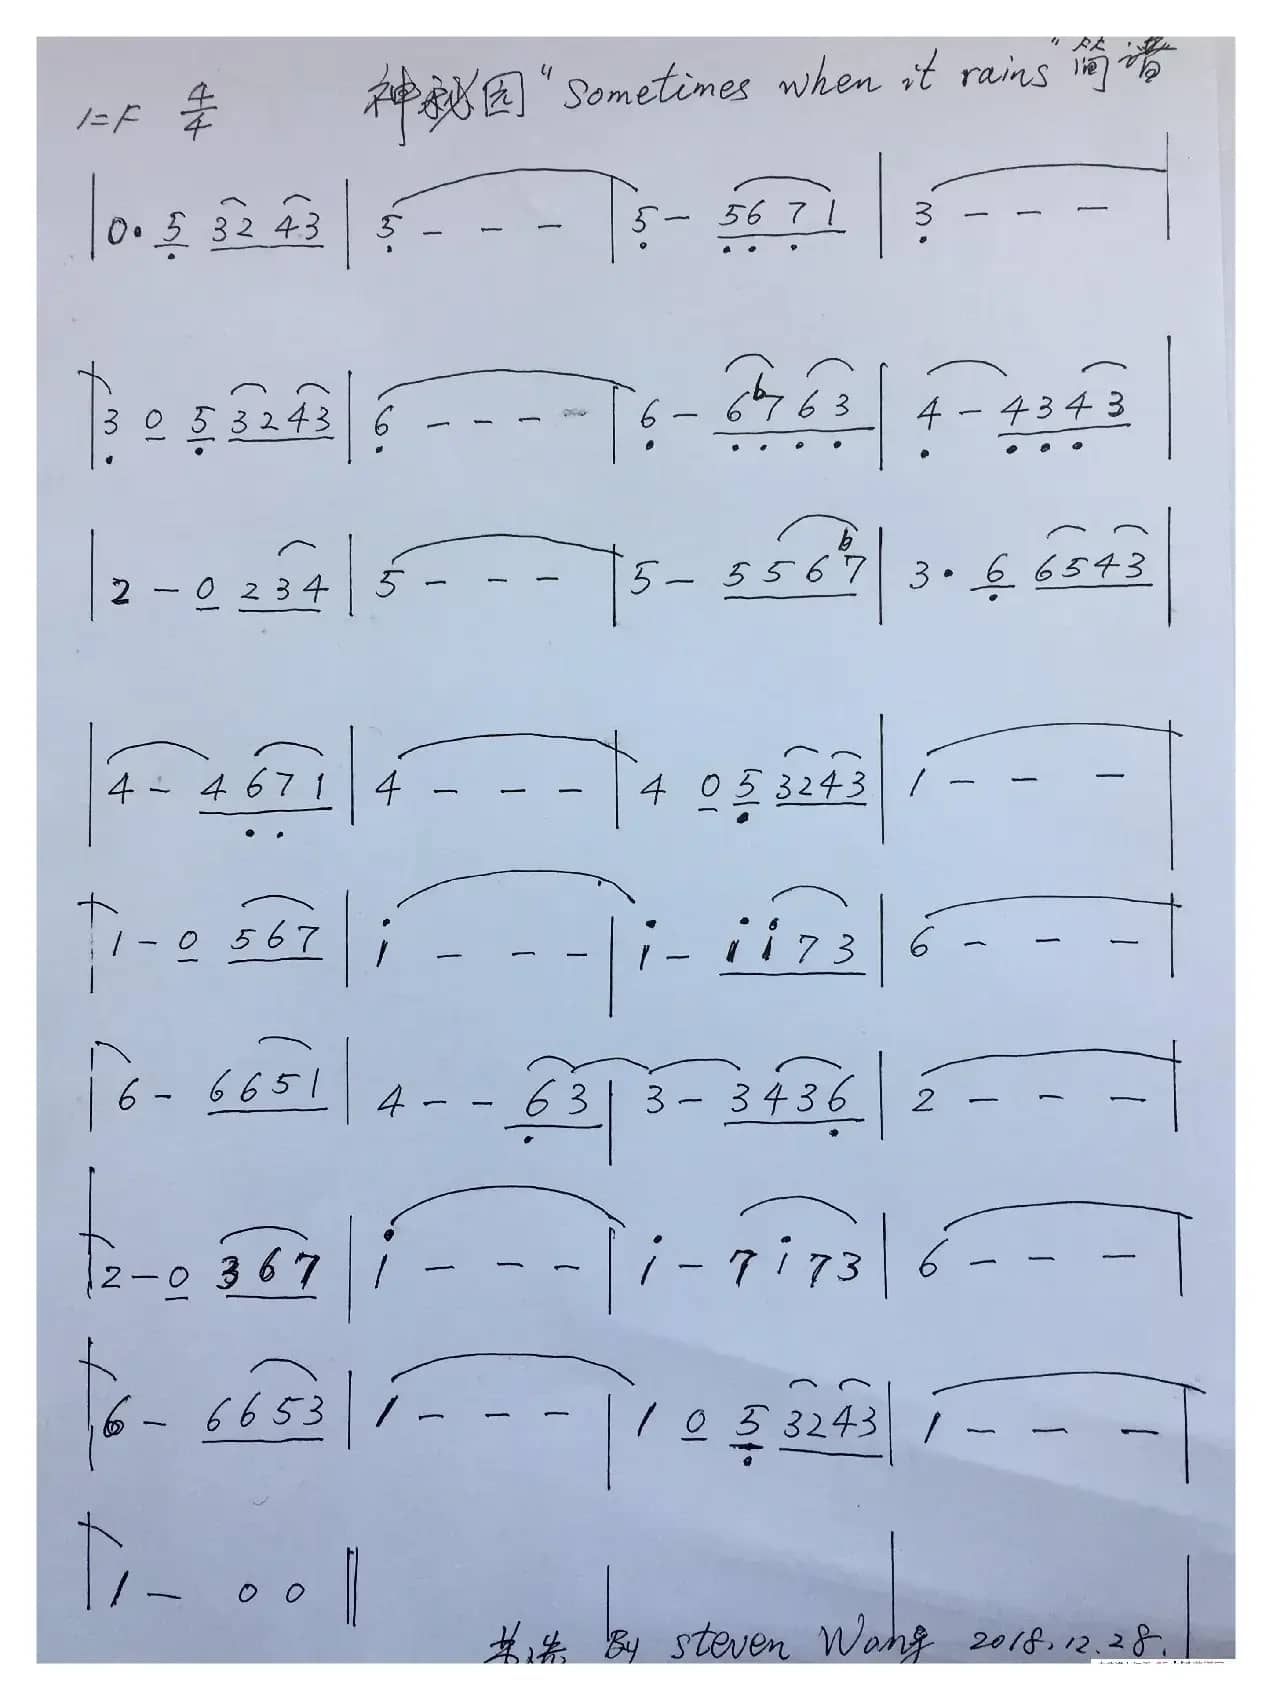 神秘园 "Sometimes when it rains" 简谱
1=F 4/4
| 0· 5 32 43 | 5 - - - | 5 - 5671 | 3 - - - |
| 3 0 5 3243 | 6 - - - - | 6 - 6b763 | 4 - 4343 |
| 2 - 0 234 | 5 - - - | 5 - 556b7 | 3· 6 6543 |
| 4 - 4671 | 4 - - - | 4 0 5 3243 | 1 - - - |
| 1 - 0 567 | i - - - | i - ii73 | 6 - - - |
| 6 - 6651 | 4 - - 63 | 3 - 3436 | 2 - - - |
| 2 - 0 367 | i - - - | i - 7i73 | 6 - - - |
| 6 - 6653 | 1 - - - | 1 0 5 3243 | 1 - - - |
| 1 - 0 0 ||
By steven Wang 2018.12.28.